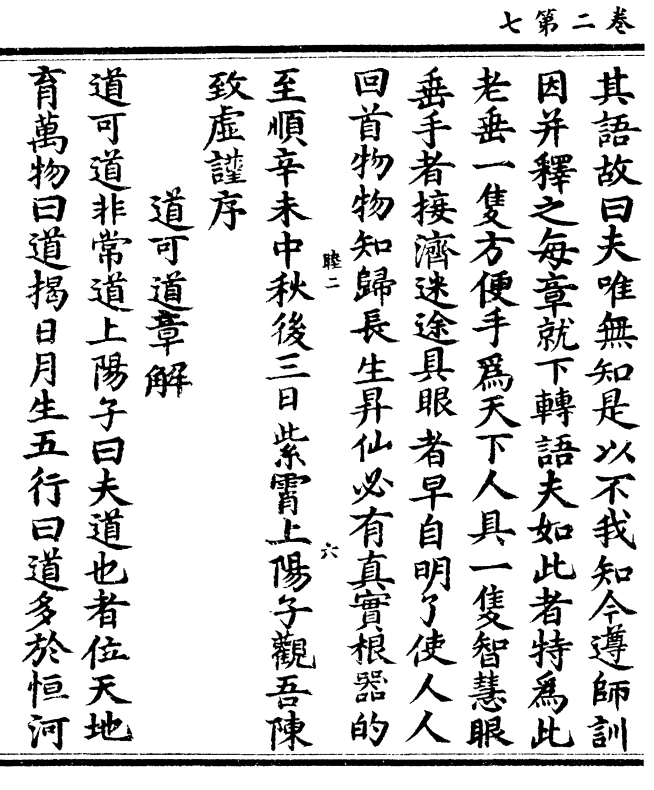 卷二第七
其語故曰夫唯無知是以不我知今遵師訓
因并釋之每章就下轉語夫如此者特爲此
老垂一隻方便手爲天下人具一隻智慧眼
垂手者接濟迷途具眼者早自明了使人人
回首物物知歸長生昇仙必有真實根器的
睦二
六
至順辛未中秋後三日紫霄上陽子觀吾陳
致虛謹序
道可道章解
道可道非常道上陽子曰夫道也者位天地
育萬物曰道揭日月生五行曰道多於恒河